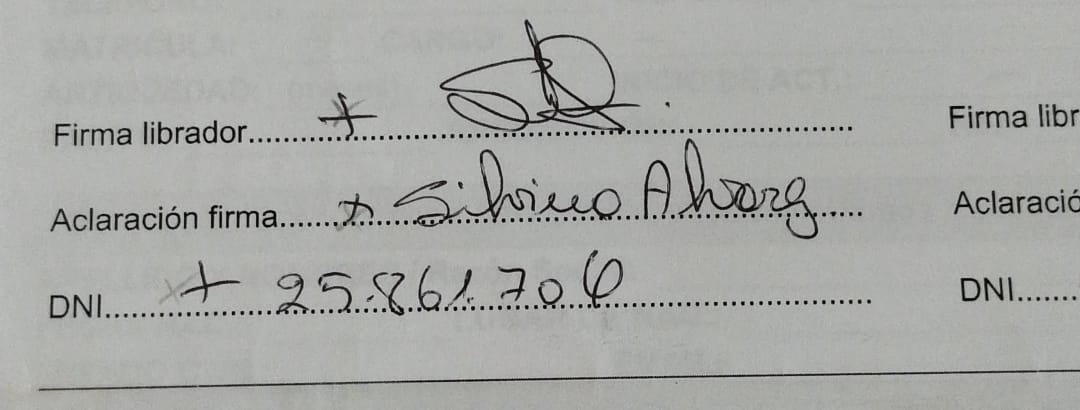 Firma librador.......+....... Firma libr
Aclaración firma.......+ Silvina Alvarez....... Aclaració
DNI.......+ 25.861.706....... DNI.......